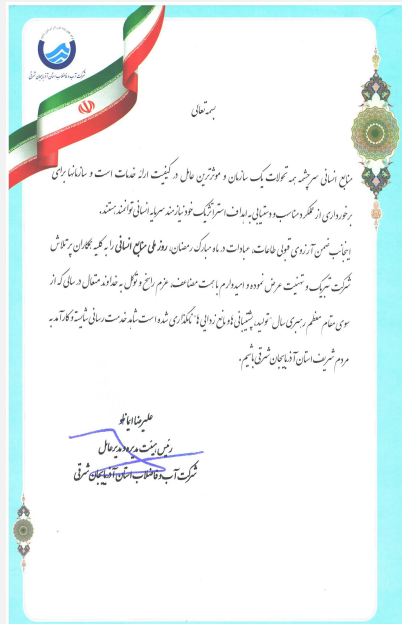 شرکت آب و فاضلاب استان آذربایجان شرقی
بسمه تعالی
منابع انسانی سرچشمه همه تحولات یک سازمان و موثرترین عامل در کیفیت ارائه خدمات است و سازمانها برای
برخورداری از عملکرد مناسب و دستیابی به اهداف استراتژیک خود نیازمند سرمایه انسانی توانمند هستند.
اینجانب ضمن آرزوی قبولی طاعات، عبادات در ماه مبارک رمضان، روز ملی منابع انسانی را به کلیه همکاران پر تلاش
شرکت تبریک و تهنیت عرض نموده و امیدوارم با همت مضاعف، عزم راسخ و توکل به خداوند متعال در سالی که از
سوی مقام معظم رهبری سال "تولید، پشتیبانی ها و مانع زدایی ها" نامگذاری شده است شاهد خدمت رسانی شایسته و کارآمد به
مردم شریف استان آذربایجان شرقی باشیم.
علیرضا ایمانلو
رئیس هیئت مدیره و مدیرعامل
شرکت آب و فاضلاب استان آذربایجان شرقی